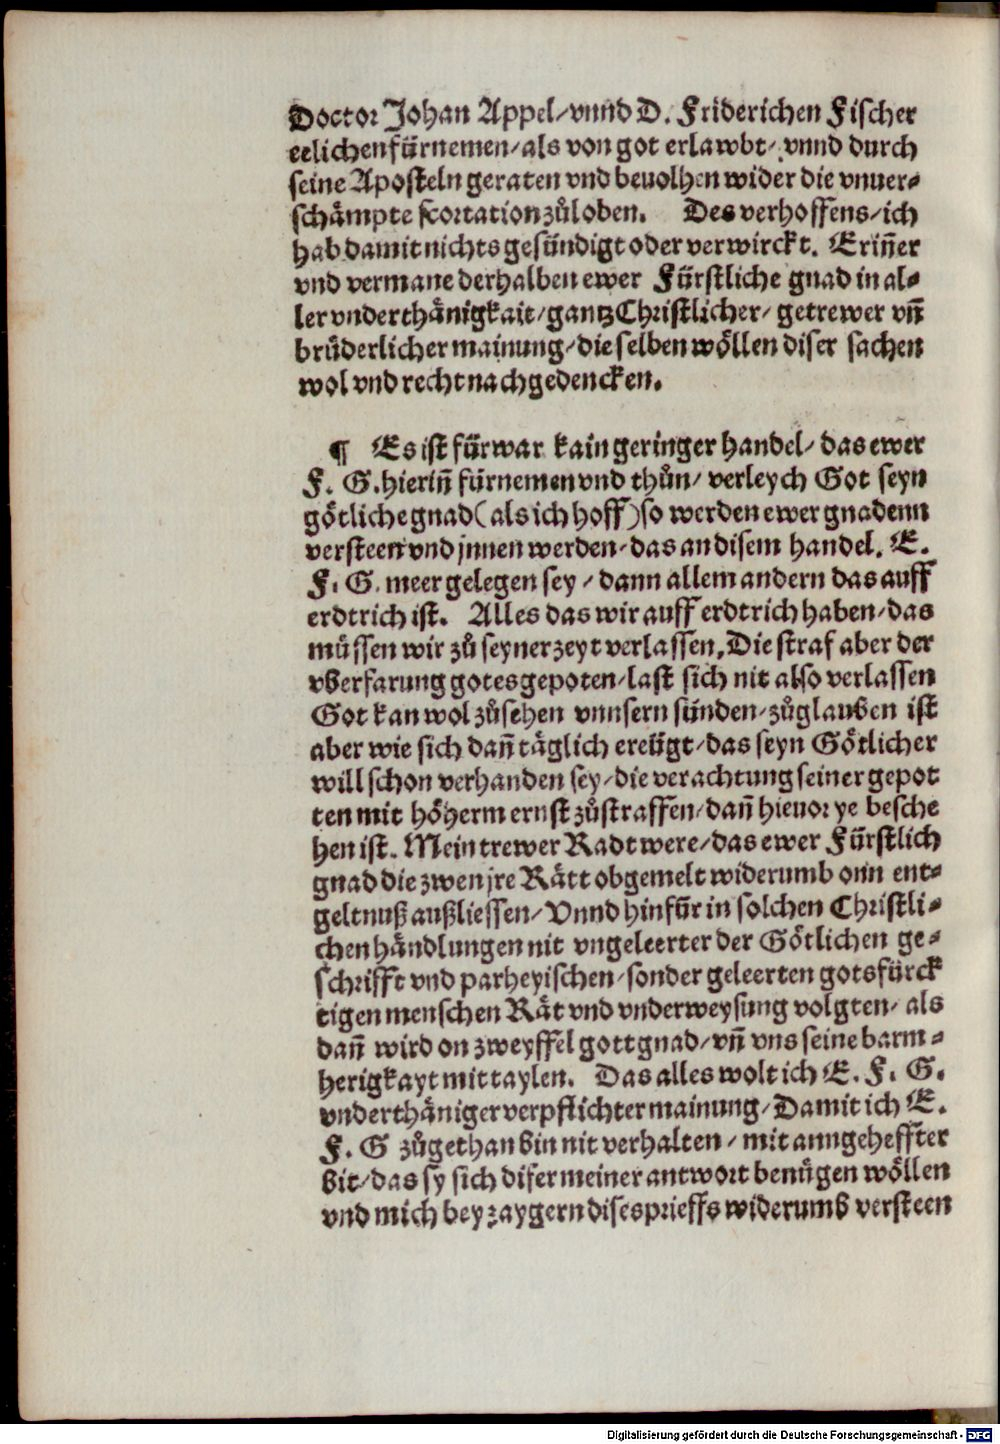 Doctor Johan Appel/ vnnd D. Friderichen Fischer
eelichen fürnemen/ als von got erlawbt/ vnnd durch
seine Aposteln geraten vnd beuolhen wider die vnuer-
schämpte scortation zůloben. Des verhoffens/ ich
hab damit nichts gesündigt oder verwirckt. Eriñer
vnd vermane derhalben ewer Fürstliche gnad in al-
ler vnderthänigkait/ gantz Christlicher/ getrewer vñ
brüderlicher mainung/ die selben wöllen diser sachen
wol vnd recht nachgedencken.
¶ Es ist fürwar kain geringer handel/ das ewer
F. G. hieriñ fürnemen vnd thůn/ verleych Got seyn
götliche gnad (als ich hoff) so werden ewer gnadenn
versteen vnd jnnen werden/ das an disem handel. E.
F. G. meer gelegen sey/ dann allem andern das auff
erdtrich ist. Alles das wir auff erdtrich haben/ das
müssen wir zů seyner zeyt verlassen. Die straf aber der
vberfarung gotes gepoten/ last sich nit also verlassen
Got kan wol zůsehen vnnsern sünden/ zůglauben ist
aber wie sich dañ täglich ereügt/ das seyn Götlicher
will schon verhanden sey/ die verachtung seiner gepot
ten mit höherm ernst zůstraffen/ dañ hieuor ye besche
hen ist. Mein trewer Radt were/ das ewer Fürstlich
gnad die zwen jre Rätt obgemelt widerumb onn ent-
geltnuß außliessen/ Vnnd hinfür in solchen Christli-
chen händlungen nit vngeleerter der Götlichen ge-
schrifft vnd parheyischen/ sonder geleerten gotsfürck
tigen menschen Rät vnd vnderweysung volgten/ als
dañ wird on zweyffel gott gnad/ vñ vns seine barm-
herigkayt mittaylen. Das alles wolt ich E. F. G.
vnderthäniger verpflichter mainung/ Damit ich E.
F. G zůgethan bin nit verhalten/ mit anngeheffter
bit/ das sy sich diser meiner antwort benügen wöllen
vnd mich bey zaygern dises prieffs widerumb versteen
Digitalisierung gefördert durch die Deutsche Forschungsgemeinschaft - DFG